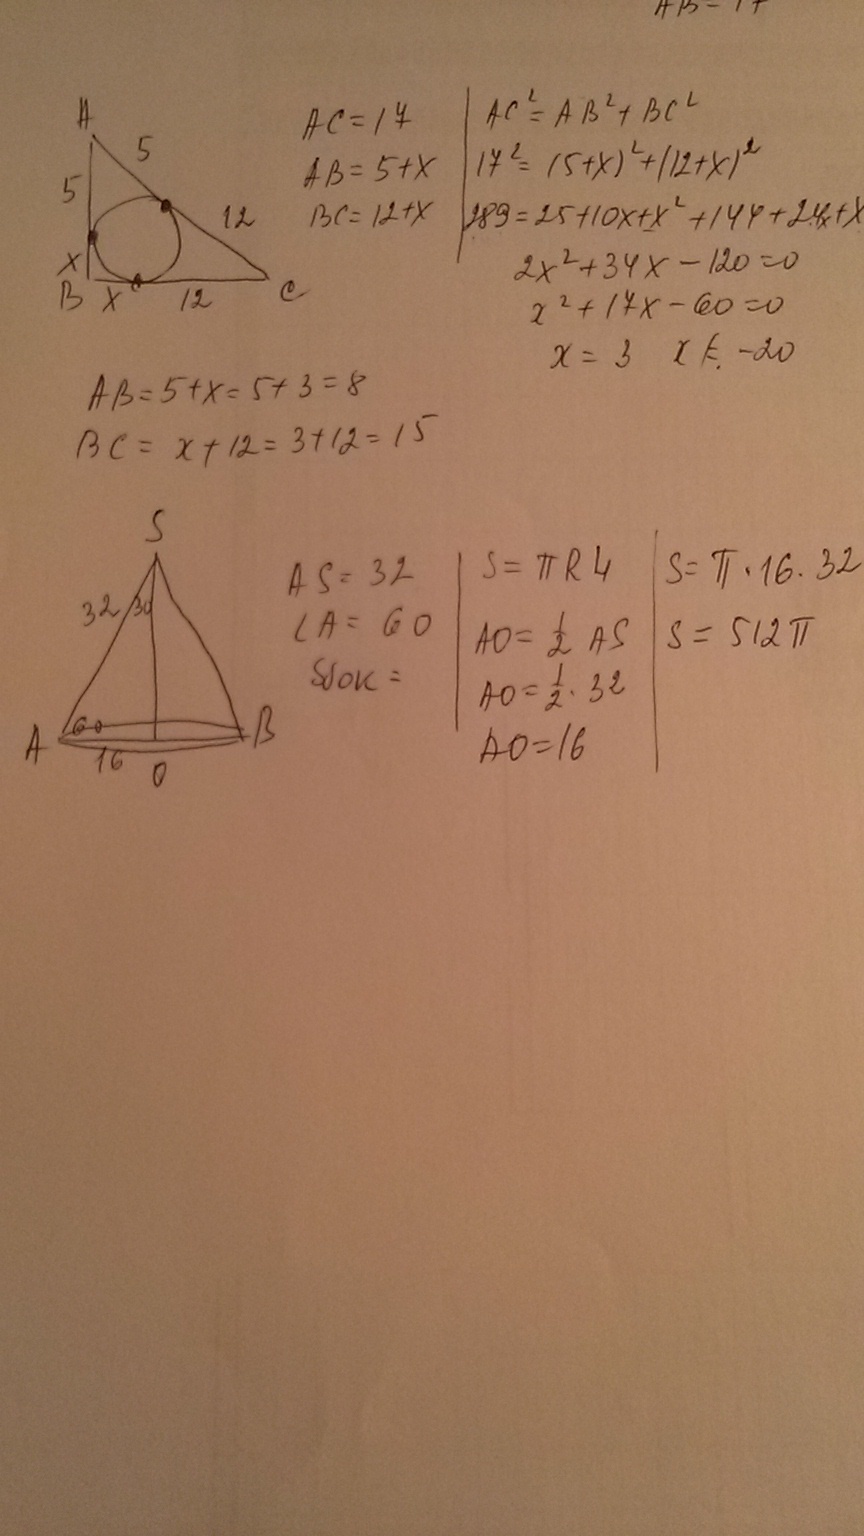 AB = 17
A
5
5
12
x
B x 12 C
AC = 17
AB = 5+x
BC = 12+x
AC² = AB² + BC²
17² = (5+x)² + (12+x)²
289 = 25+10x+x² + 144 + 24x+x
2x² + 34x - 120 = 0
x² + 17x - 60 = 0
x = 3 x ≠ -20
AB = 5+x = 5+3 = 8
BC = x+12 = 3+12 = 15
S
32 30
60
A B
16 O
AS = 32
∠A = 60
Sбок =
S = πRL
AO = ½ AS
AO = ½ · 32
AO = 16
S = π · 16 · 32
S = 512π